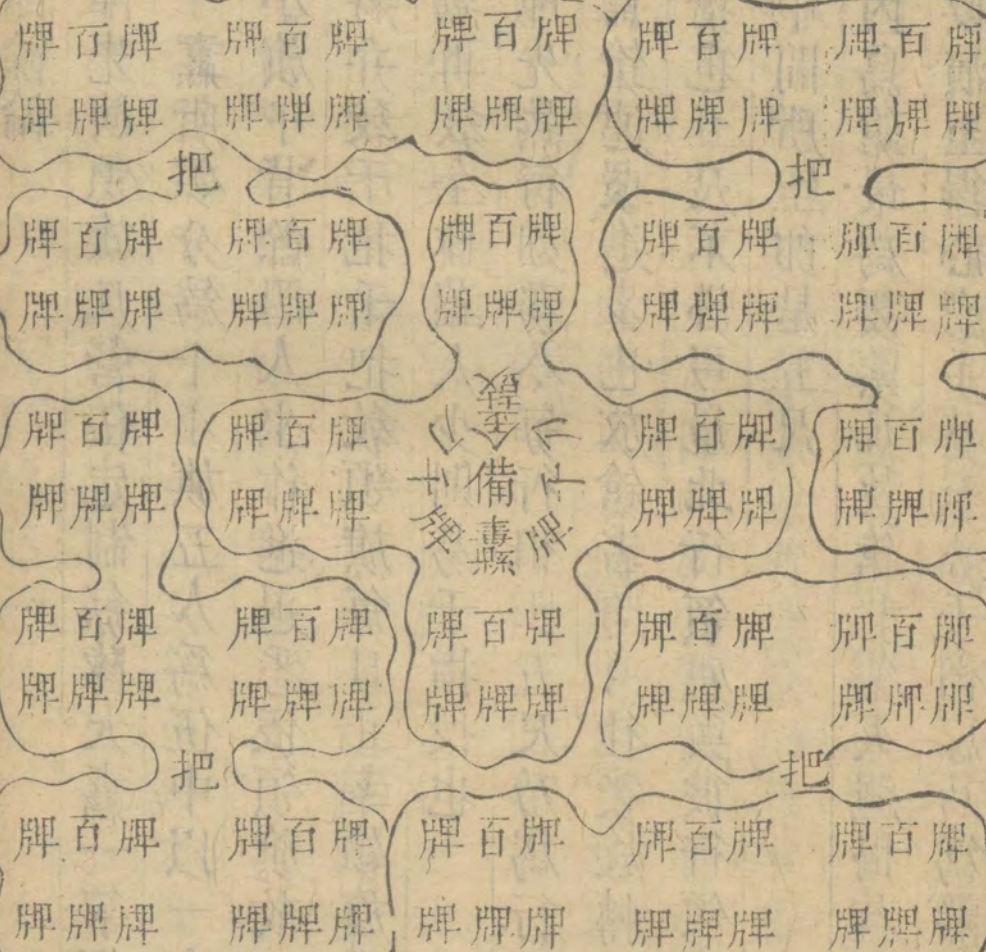 牌百牌 牌百牌 牌百牌 牌百牌 牌百牌
牌牌牌 牌牌牌 牌牌牌 牌牌牌 牌牌牌
把 把
牌百牌 牌百牌 牌百牌 牌百牌 牌百牌
牌牌牌 牌牌牌 牌牌牌 牌牌牌 牌牌牌
鼓
牌百牌 牌百牌 金 牌百牌 牌百牌
牌牌牌 牌牌牌 備 牌牌牌 牌牌牌
牌 牌
牌百牌 牌百牌 牌百牌 牌百牌 牌百牌
牌牌牌 牌牌牌 牌牌牌 牌牌牌 牌牌牌
把 把
牌百牌 牌百牌 牌百牌 牌百牌 牌百牌
牌牌牌 牌牌牌 牌牌牌 牌牌牌 牌牌牌